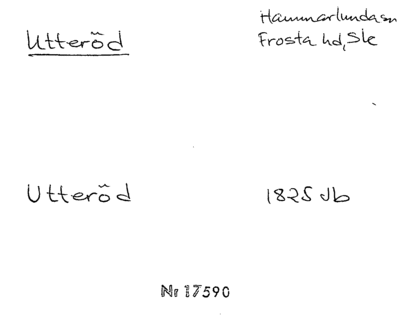 Utteröd
Hammarlunda sn
Frosta hd, Ske
Utteröd
1825 Jb
Nr 17590